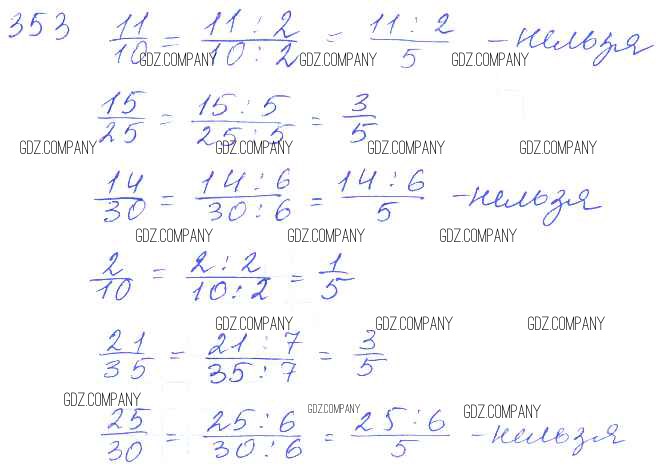 353 11/10 = 11:2/10:2 = 11:2/5 - нельзя
GDZ.COMPANY GDZ.COMPANY GDZ.COMPANY
15/25 = 15:5/25:5 = 3/5
GDZ.COMPANY GDZ.COMPANY GDZ.COMPANY GDZ.COMPANY
14/30 = 14:6/30:6 = 14:6/5 - нельзя
GDZ.COMPANY GDZ.COMPANY GDZ.COMPANY
2/10 = 2:2/10:2 = 1/5
GDZ.COMPANY GDZ.COMPANY GDZ.COMPANY
21/35 = 21:7/35:7 = 3/5
GDZ.COMPANY GDZ.COMPANY GDZ.COMPANY
25/30 = 25:6/30:6 = 25:6/5 - нельзя